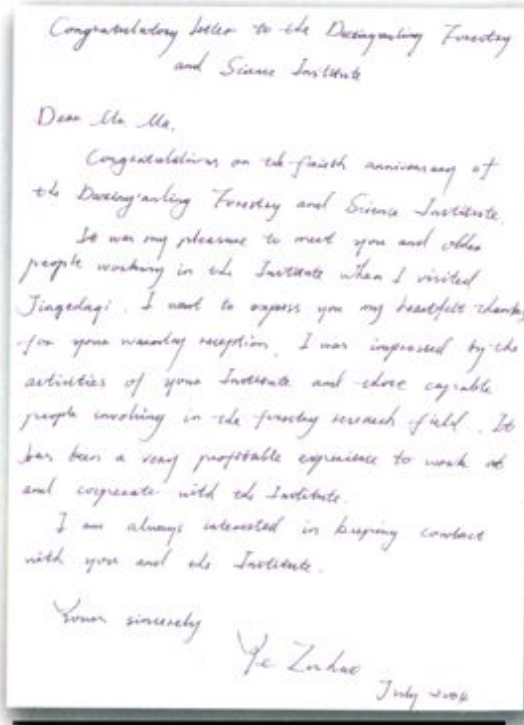 Congratulatory letter to the Daxing'anling Forestry
and Science Institute
Dear Mr Ma,
Congratulations on the fortieth anniversary of
the Daxing'anling Forestry and Science Institute.
It was my pleasure to meet you and other
people working in the Institute when I visited
Jiagedaqi. I want to express you my heartfelt thanks
for your reception. I was impressed by the
activities of your Institute and those capable
people involving in the forestry research field. It
has been a very profitable experience to work at
and cooperate with the Institute.
I am always interested in keeping contact
with you and the Institute.
Yours sincerely
Ye
July 2004